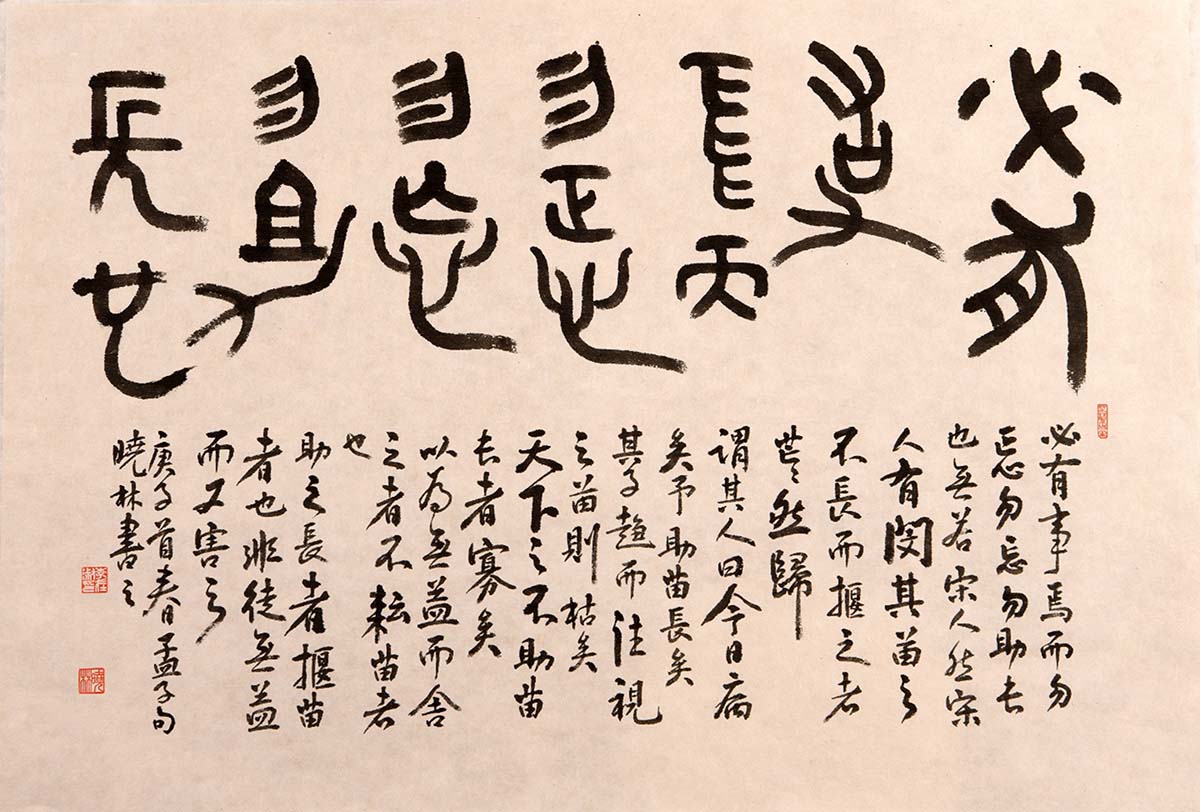 必有
事
焉而
勿正心
勿忘
勿助
長也
必有事焉而勿
正心勿忘勿助長
也無若宋人然宋
人有閔其苗之
不長而揠之者
芒〻然歸
謂其人曰今日病
矣予助苗長矣
其子趨而往視
之苗則枯矣
天下之不助苗
長者寡矣
以為無益而舍
之者不耘苗者
也
助之長者揠苗
者也非徒無益
而又害之
庚子首春孟子句
曉林書之
曉林